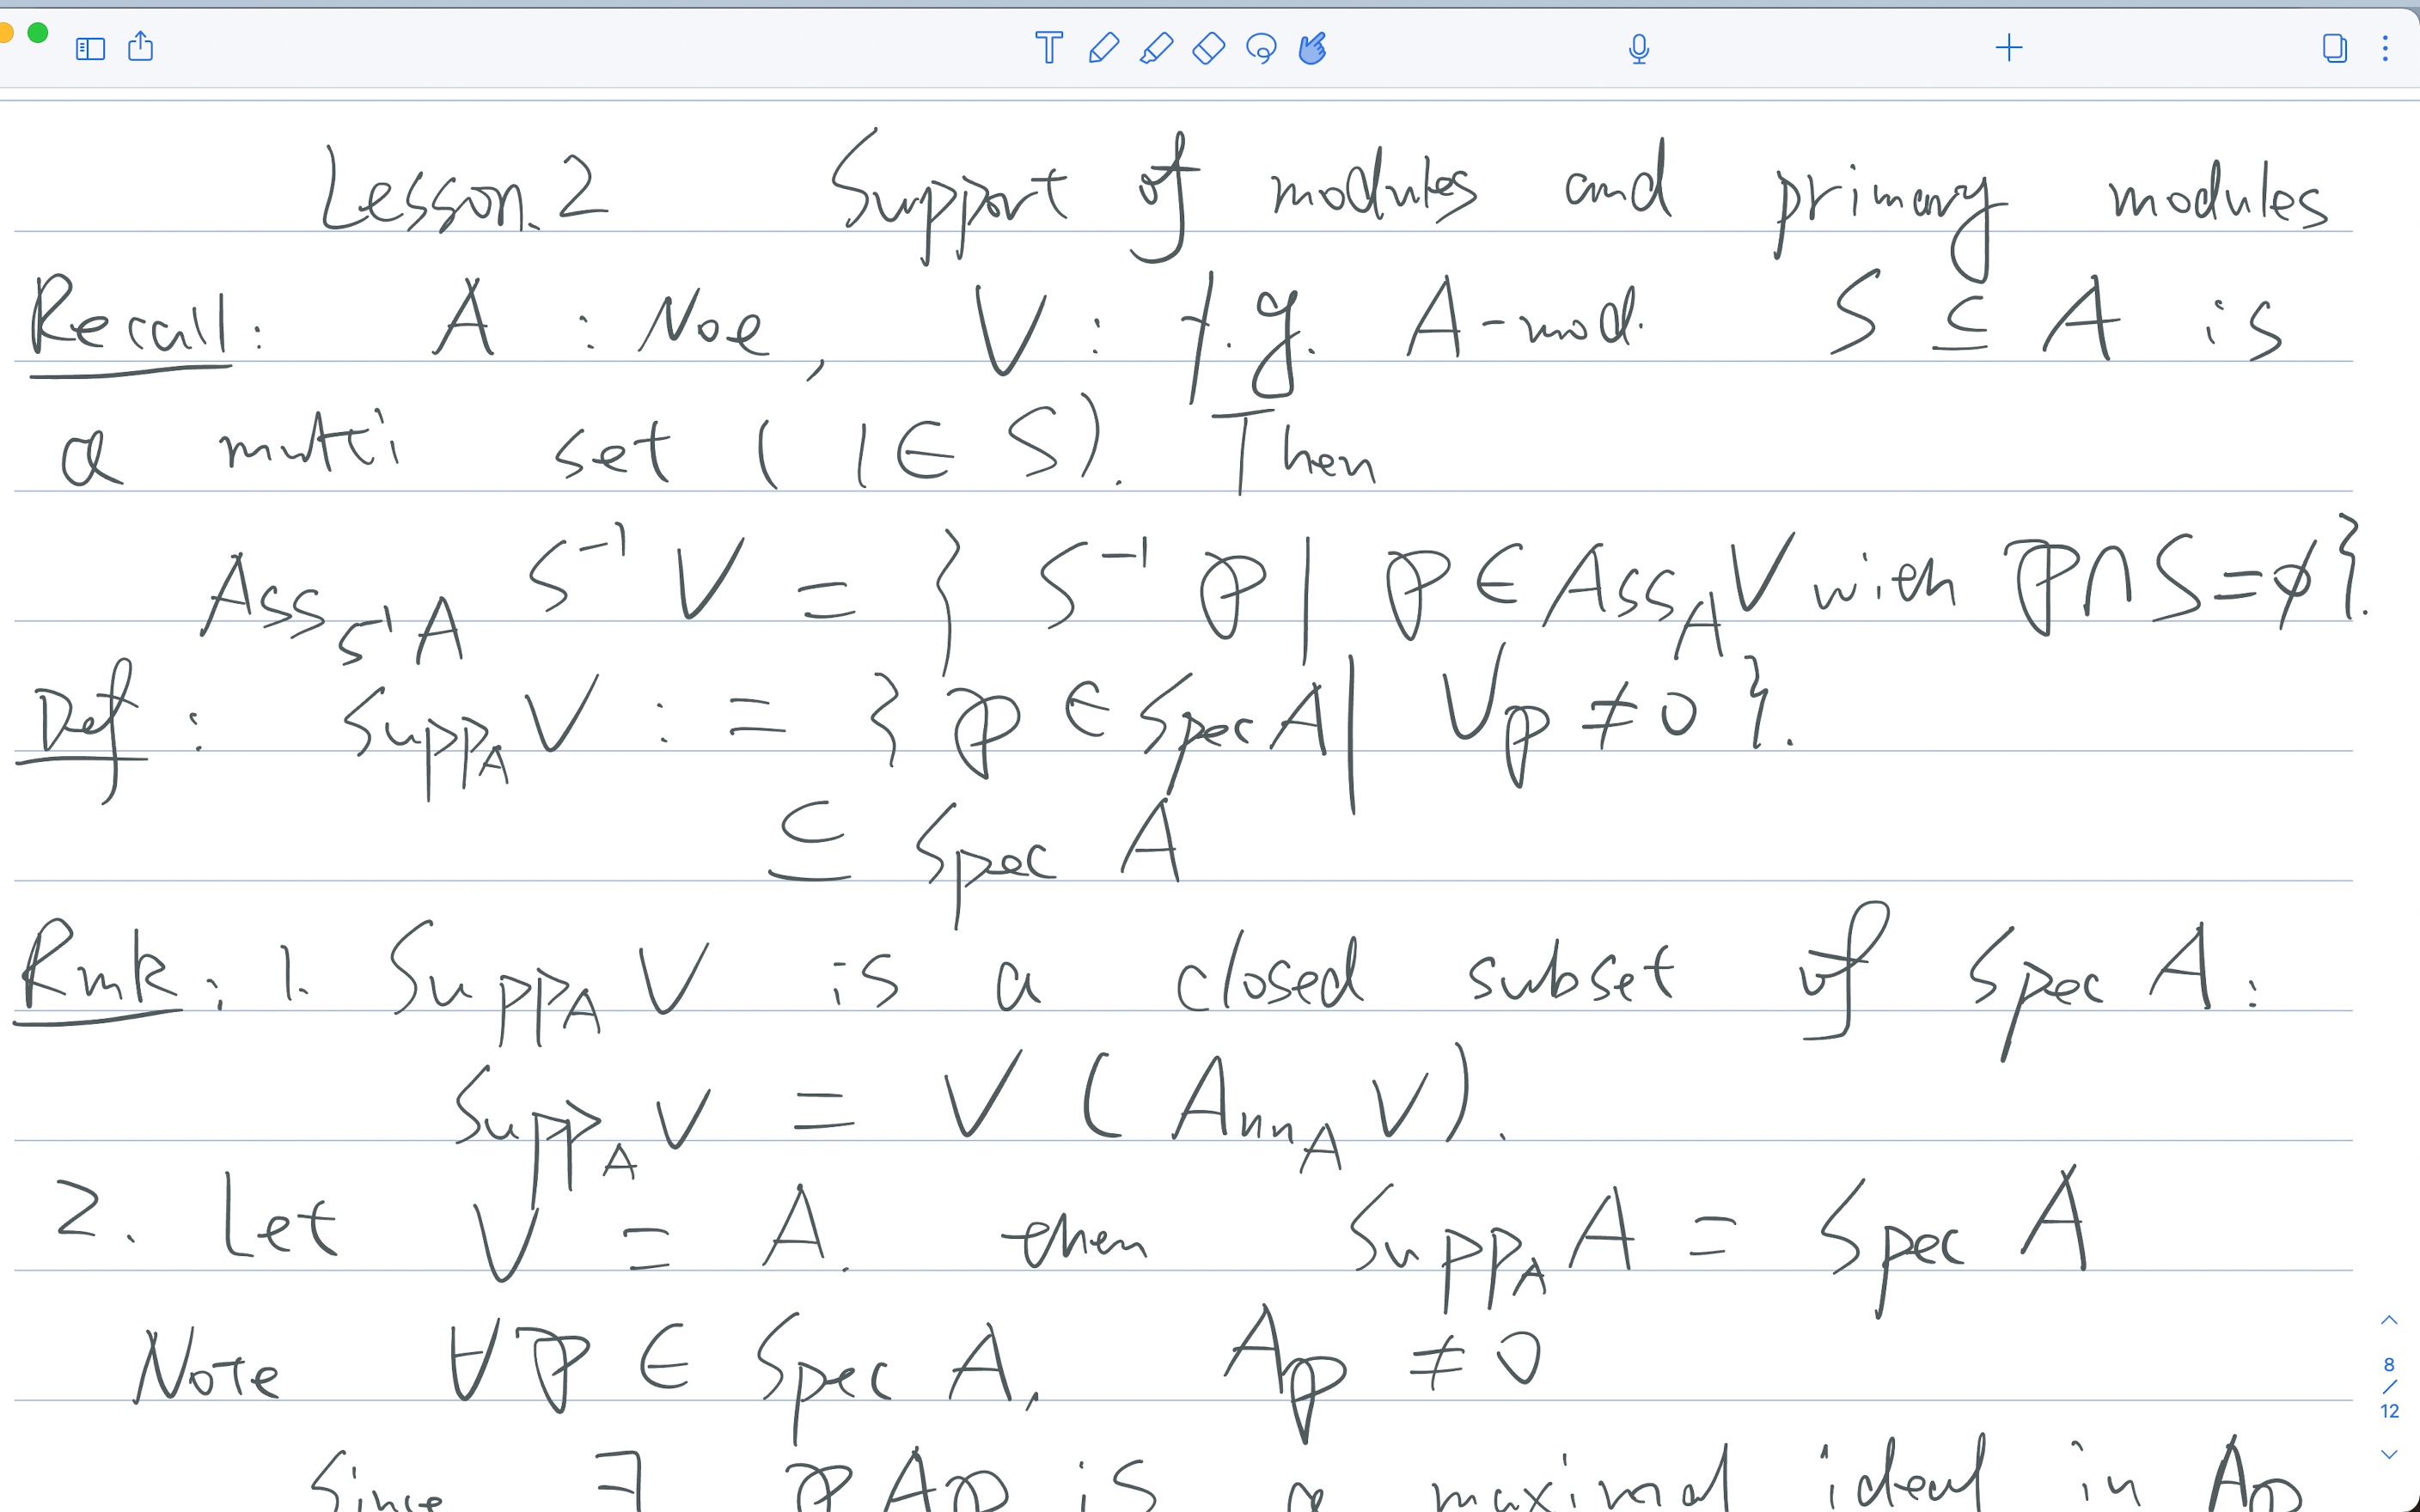 Lesson 2 Support of modules and primary modules
Recall: A : Noe, V : f.g. A-mod. S ⊆ A is
a multi set (1 ∈ S). Then
Ass_{S⁻¹A} S⁻¹V = { S⁻¹p | p ∈ Ass_A V with p ∩ S = ∅ }.
Def : Supp_A V := { p ∈ Spec A | V_p ≠ 0 }.
⊆ Spec A
Rmk: 1. Supp_A V is a closed subset of Spec A :
Supp_A V = V ( Ann_A V ) .
2. Let V = A. then Supp_A A = Spec A
Note ∀ p ∈ Spec A, A_p ≠ 0
Since ∃ p A_p is a maximal ideal in A_p
8
/
12